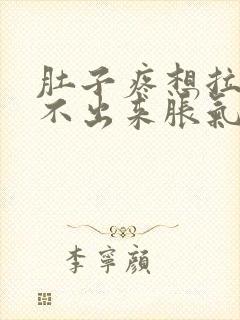 肚子疼想拉
不出来胀氣
李寧顔